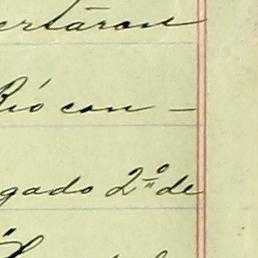 ertáron
Rió con —
gado 2º de